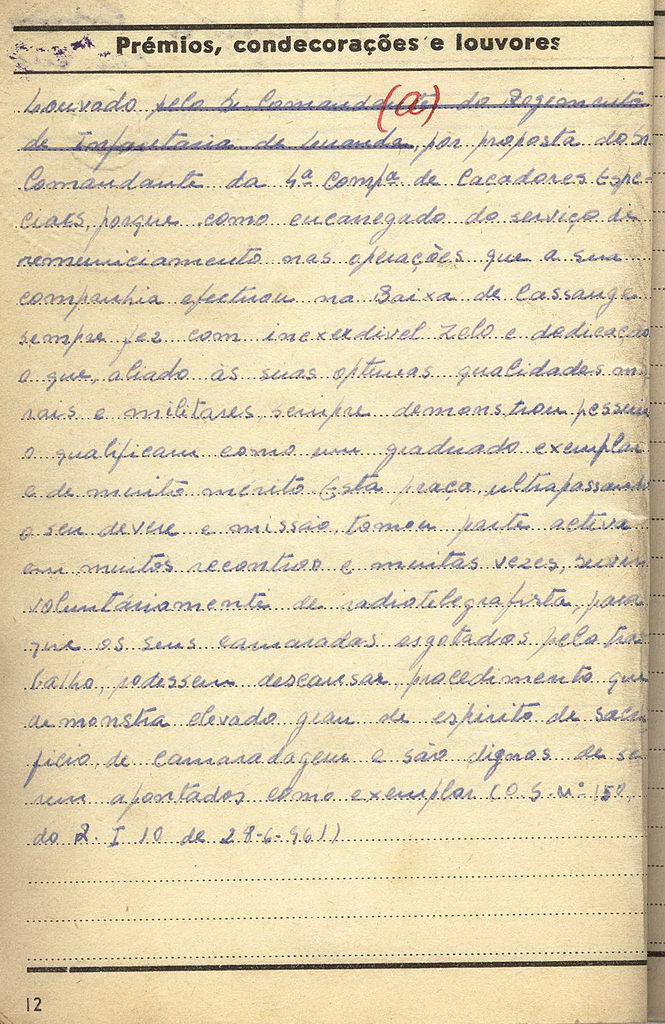 Prémios, condecorações e louvores
Louvado pelo Comandante (a) do Regimento
de Infantaria de Luanda, por proposta do Sr
Comandante da 4ª Compª de Caçadores Espe-
ciais, porque como encarregado do serviço de
remuniciamento nas operações que a sua
companhia efectuou na Baixa de Cassange
sempre fez com inexcedivel zelo e dedicação
o que, aliado às suas optimas qualidades mo
rais e militares, sempre demonstrou possuir
o qualificam como um graduado exemplar
e de muito mérito Esta praça, ultrapassando
o seu devere e missão, tomou parte activa
em muitos recontros e muitas vezes, serviu
voluntáriamente de radiotelegrafista, para
que os seus camaradas esgotados pelo tra
balho, podessem descansar, procedimento que
demonstra elevado grau de espirito de sacri
ficio, de camaradagem e são dignos de se
rem apontados como exemplar (O.S. nº 150,
do R. I 10 de 28-6-961)
12